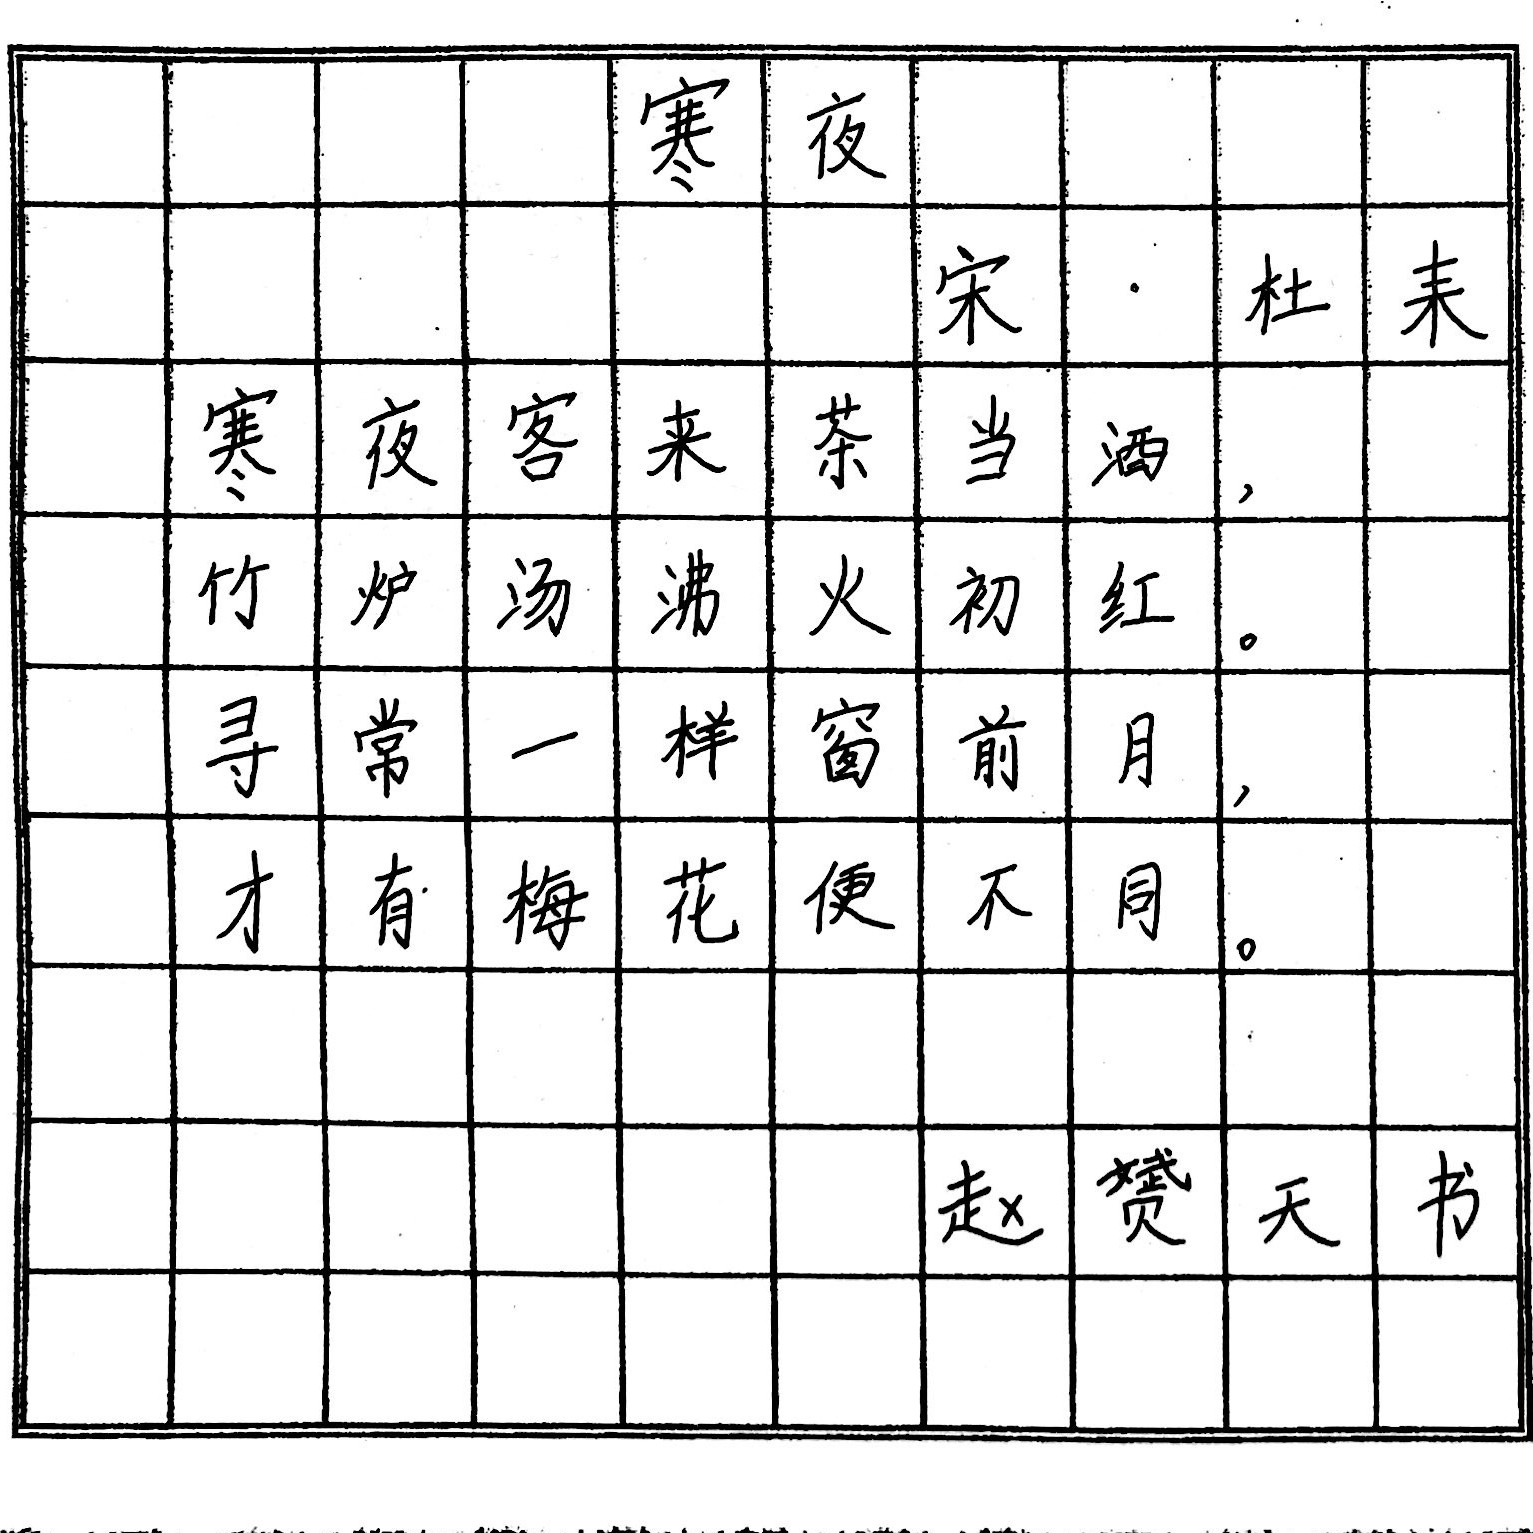 寒夜
宋·杜耒
寒夜客来茶当酒，
竹炉汤沸火初红。
寻常一样窗前月，
才有梅花便不同。
赵赟天书